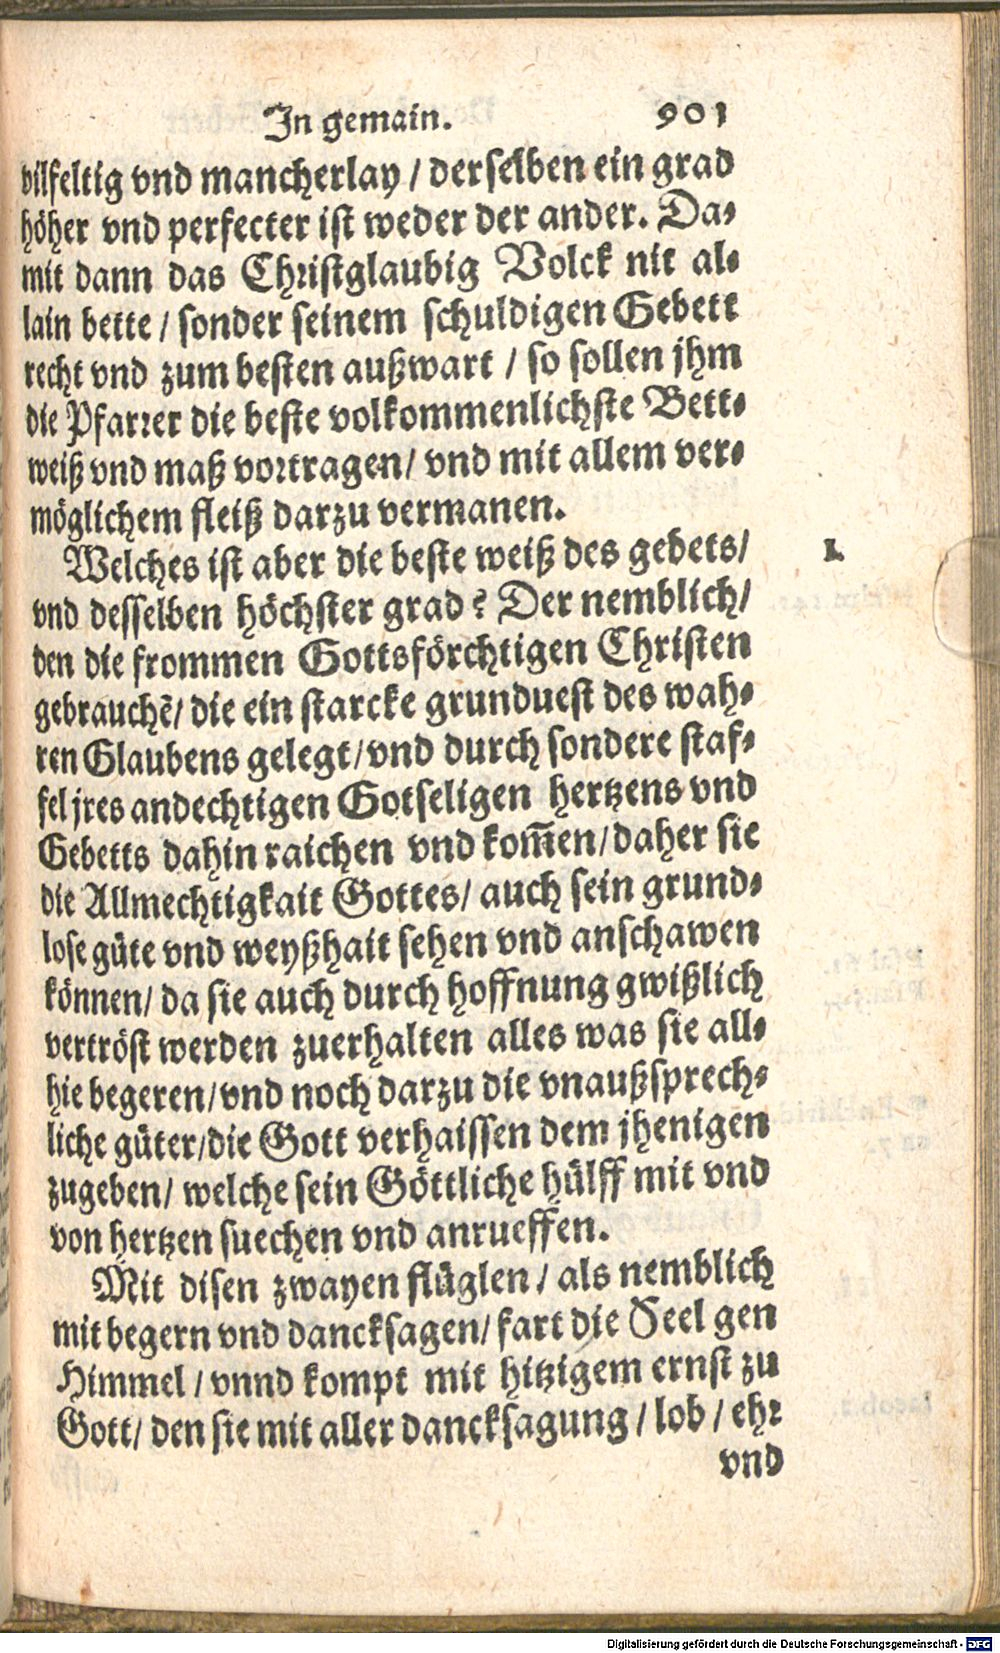 In gemain. 901
vilfeltig vnd mancherlay / derselben ein grad
höher vnd perfecter ist weder der ander. Da⸗
mit dann das Christglaubig Volck nit al⸗
lain bette / sonder seinem schuldigen Gebett
recht vnd zum besten außwart / so sollen jhm
die Pfarrer die beste volkommenlichste Bett⸗
weiß vnd maß vortragen / vnd mit allem ver⸗
möglichem fleiß darzu vermanen.
Welches ist aber die beste weiß des gebets / 1.
vnd desselben höchster grad? Der nemblich /
den die frommen Gottsförchtigen Christen
gebrauchē / die ein starcke grunduest des wah⸗
ren Glaubens gelegt / vnd durch sondere staf⸗
fel jres andechtigen Gotseligen hertzens vnd
Gebetts dahin raichen vnd kom̄en / daher sie
die Allmechtigkait Gottes / auch sein grund⸗
lose güte vnd weyßhait sehen vnd anschawen
können / da sie auch durch hoffnung gwißlich
vertröst werden zuerhalten alles was sie all⸗
hie begeren / vnd noch darzu die vnaußsprech⸗
liche güter / die Gott verhaissen dem jhenigen
zugeben / welche sein Göttliche hülff mit vnd
von hertzen suechen vnd anrueffen.
Mit disen zwayen flüglen / als nemblich
mit begern vnd dancksagen / fart die Seel gen
Himmel / vnnd kompt mit hitzigem ernst zu
Gott / den sie mit aller dancksagung / lob / ehr
vnd
Digitalisierung gefördert durch die Deutsche Forschungsgemeinschaft - DFG